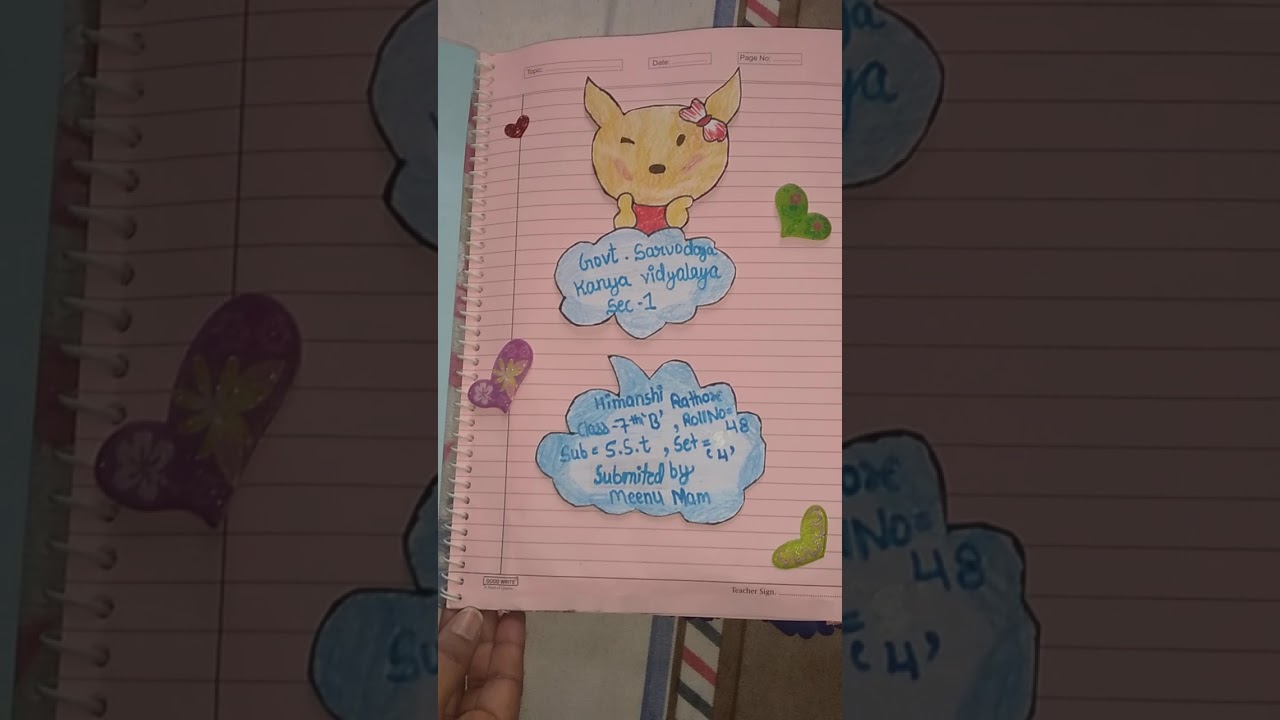 Topic:
Date:
Page No:
Govt. Sarvodaya
Kanya Vidyalaya
Sec-1
Himanshi Rathore
Class-7th 'B', Roll No= 48
Sub= S.S.t, Set= '4'
Submited by
Meenu Mam
GOOD WRITE
Teacher Sign.